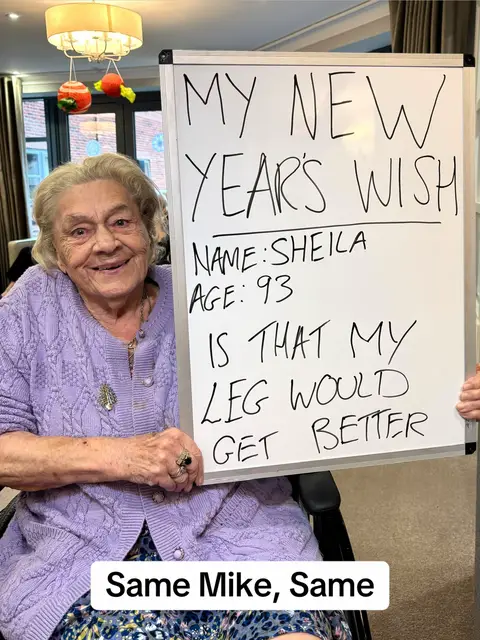 MY NEW
YEAR'S WISH
NAME: SHEILA
AGE: 93
IS THAT MY
LEG WOULD
GET BETTER
Same Mike, Same